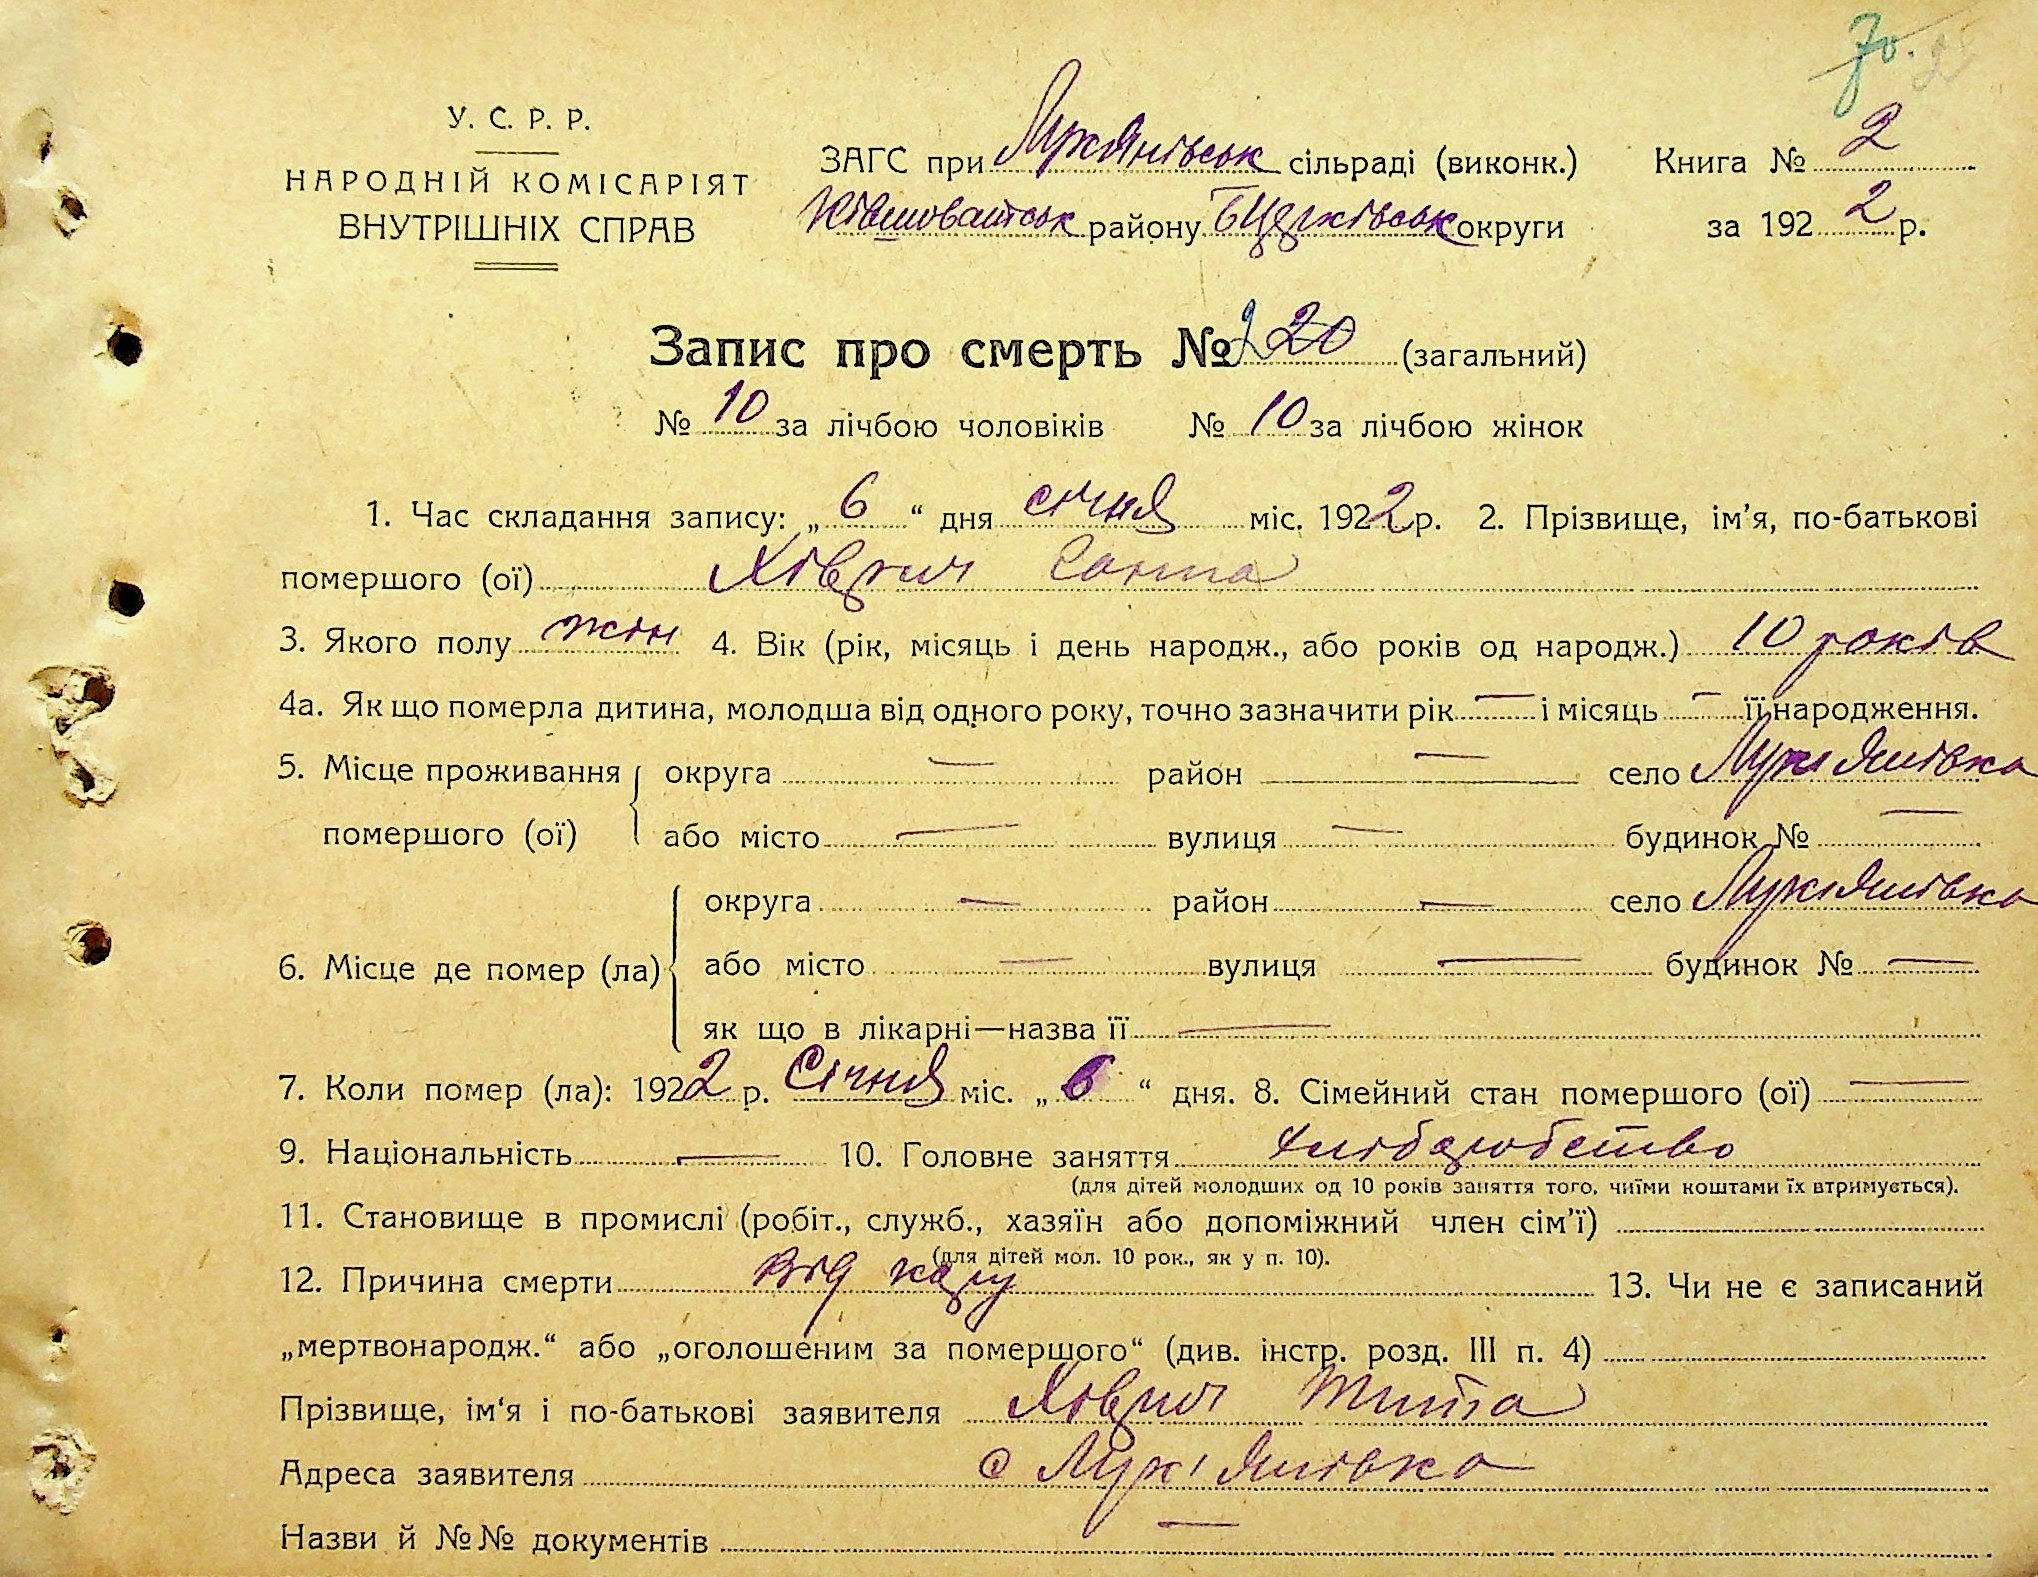 70.
У. С. Р. Р.
НАРОДНІЙ КОМІСАРІЯТ
ВНУТРІШНІХ СПРАВ
ЗАГС при Лукянівськ сільраді (виконк.)
Ківшоватськ району БЦерківськ округи
Книга № 2
за 192 2 р.
Запис про смерть № 220 (загальний)
№ 10 за лічбою чоловіків № 10 за лічбою жінок
1. Час складання запису: „ 6 “ дня січня міс. 1922 р. 2. Прізвище, ім’я, по-батькові
помершого (ої)
3. Якого полу жін 4. Вік (рік, місяць і день народж., або років од народж.) 10 років
4а. Як що померла дитина, молодша від одного року, точно зазначити рік — і місяць — її народження.
5. Місце проживання округа — район — село Лук'янівка
помершого (ої) або місто — вулиця — будинок № —
округа — район — село Лук'янівка
6. Місце де помер (ла) або місто — вулиця — будинок № —
як що в лікарні—назва її —
7. Коли помер (ла): 1922 р. Січня міс. „ 6 “ дня. 8. Сімейний стан помершого (ої) —
9. Національність — 10. Головне заняття хліборобство
(для дітей молодших од 10 років заняття того, чиїми коштами їх втримується).
11. Становище в промислі (робіт., служб., хазяїн або допоміжний член сім’ї)
(для дітей мол. 10 рок., як у п. 10).
12. Причина смерти від кору 13. Чи не є записаний
„мертвонародж.“ або „оголошеним за помершого“ (див. інстр. розд. III п. 4)
Прізвище, ім‘я і по-батькові заявителя
Адреса заявителя с Лук'янівка
Назви й №№ документів —